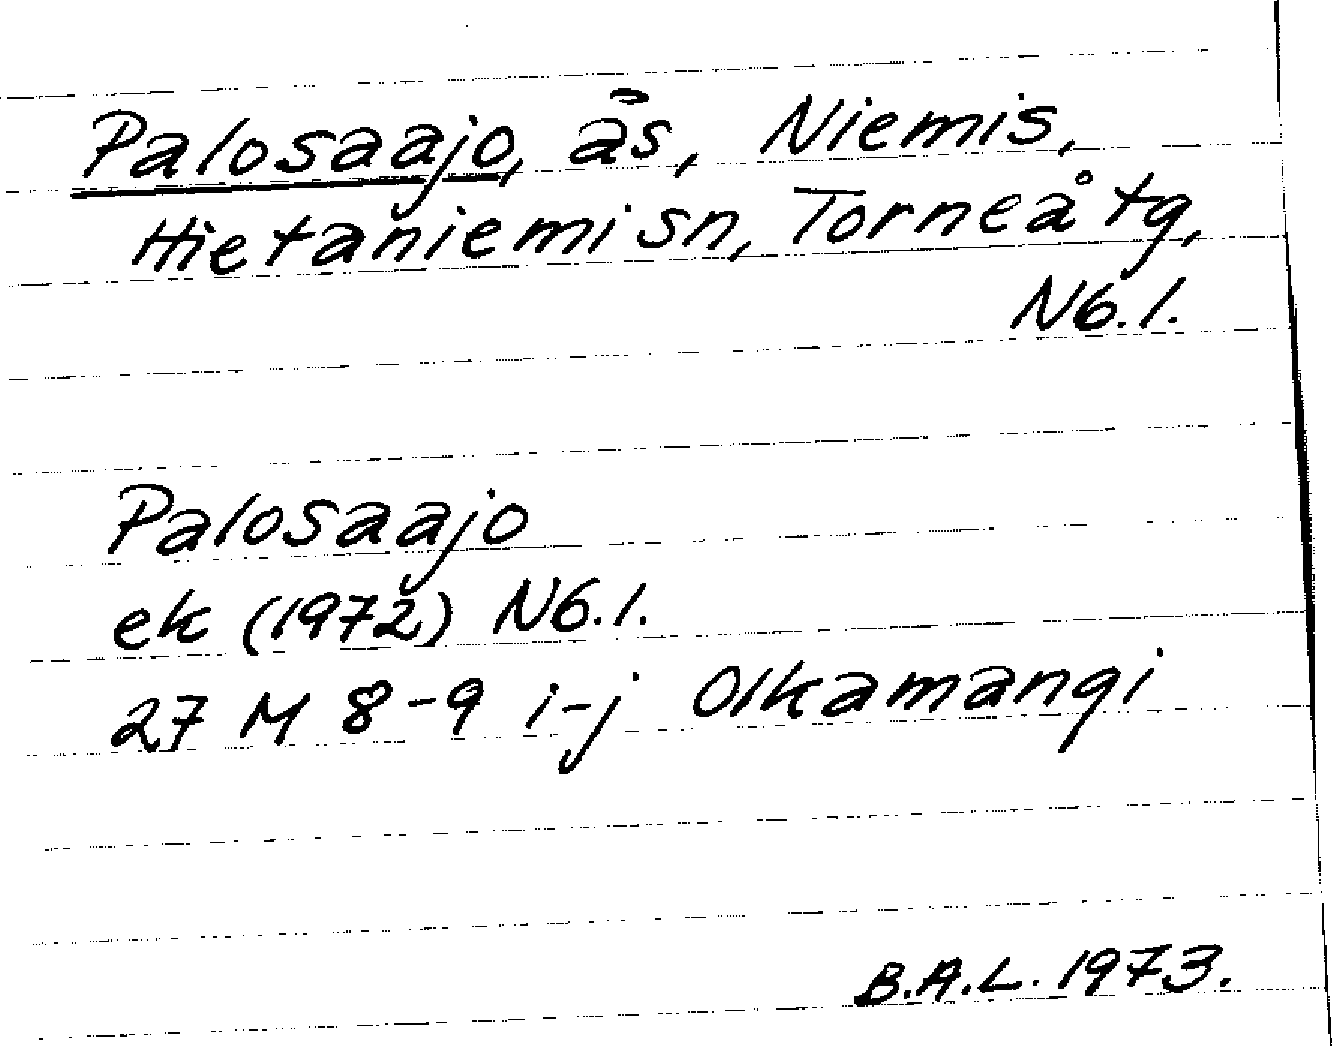 Palosaajo, ås, Niemis,
Hietaniemi sn, Torneå tg,
N6.l.
Palosaajo
ek (1972) N6.l.
27 M 8-9 i-j Olkamangi
B.A.L. 1973.